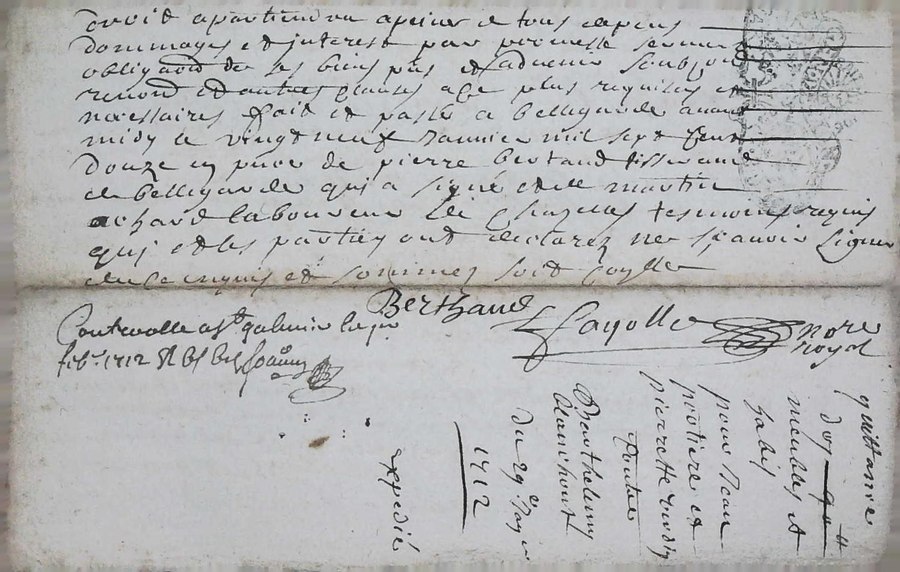 droit apartiendra a peine de tous depens
dommages et interest par promesse serment
obligaõn de ses biens pnts et advenir soubz
renonõ et autres clauses a ce plus requises et
necessaires fait et passé a bellegarde avant
midy le vingtneuf Janvier mil sept cent
douze en pnce de pierre bertaud tisserand
de bellegarde qui a signé et de martin
achard laboureur de chazelles tesmoins requis
qui et les parties ont declarez ne sçavoir signer
de ce enquis et sommez soit
Berthaud
Fayolle nore
royal
Controolle a St galmier le
febr. 1712
quittance
dos
meubles et
habis
pour Jean
et
pierrette
contre
Barthelemy
du 29e
1712
expedié